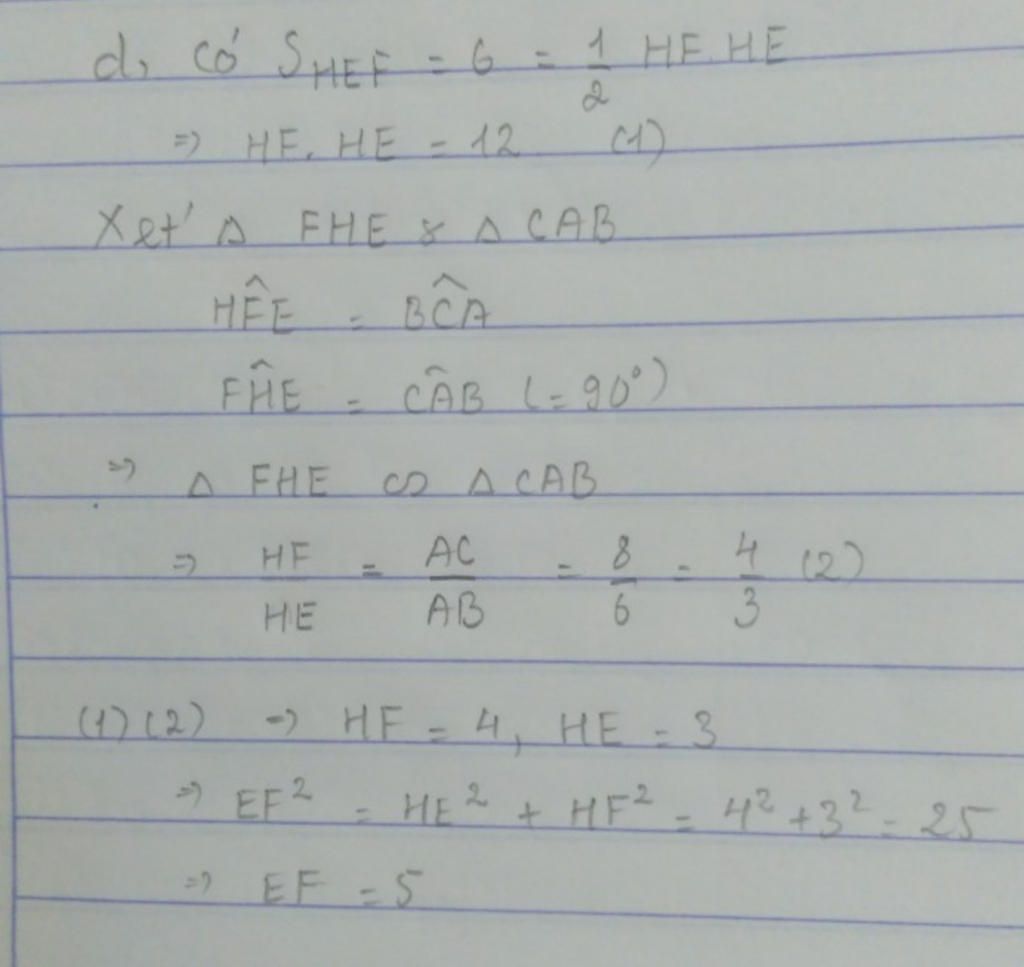 d, Có S_HEF = 6 = 1/2 HF.HE
=> HF.HE = 12 (1)
Xét Δ FHE & Δ CAB
HF̂E = BĈA
FĤE = CÂB (= 90°)
=> Δ FHE ∽ Δ CAB
=> HF/HE = AC/AB = 8/6 = 4/3 (2)
(1)(2) => HF = 4, HE = 3
=> EF² = HE² + HF² = 4² + 3² = 25
=> EF = 5